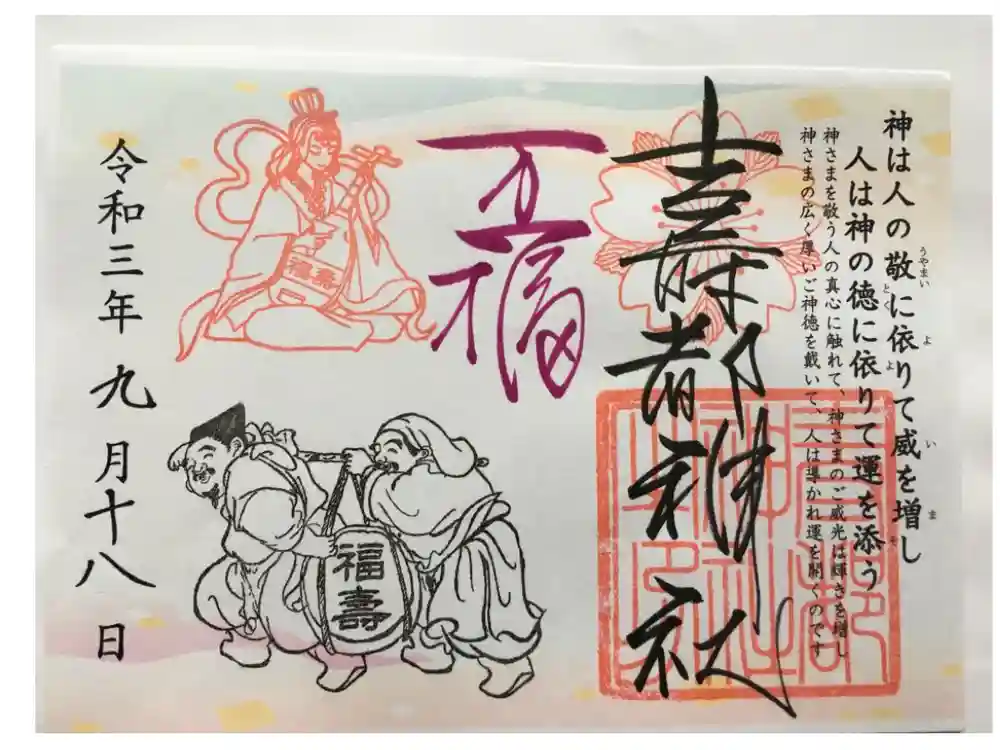 神は人の敬に依りて威を増し
うやまい よ い ま
人は神の徳に依りて運を添う
と よ そ
神さまを敬う人の真心に触れて、神さまのご威光は輝きを増し
神さまの広く厚いご神徳を戴いて、人は導かれ運を開くのです
壽都神社
五福
福壽
福壽
令和三年九月十八日